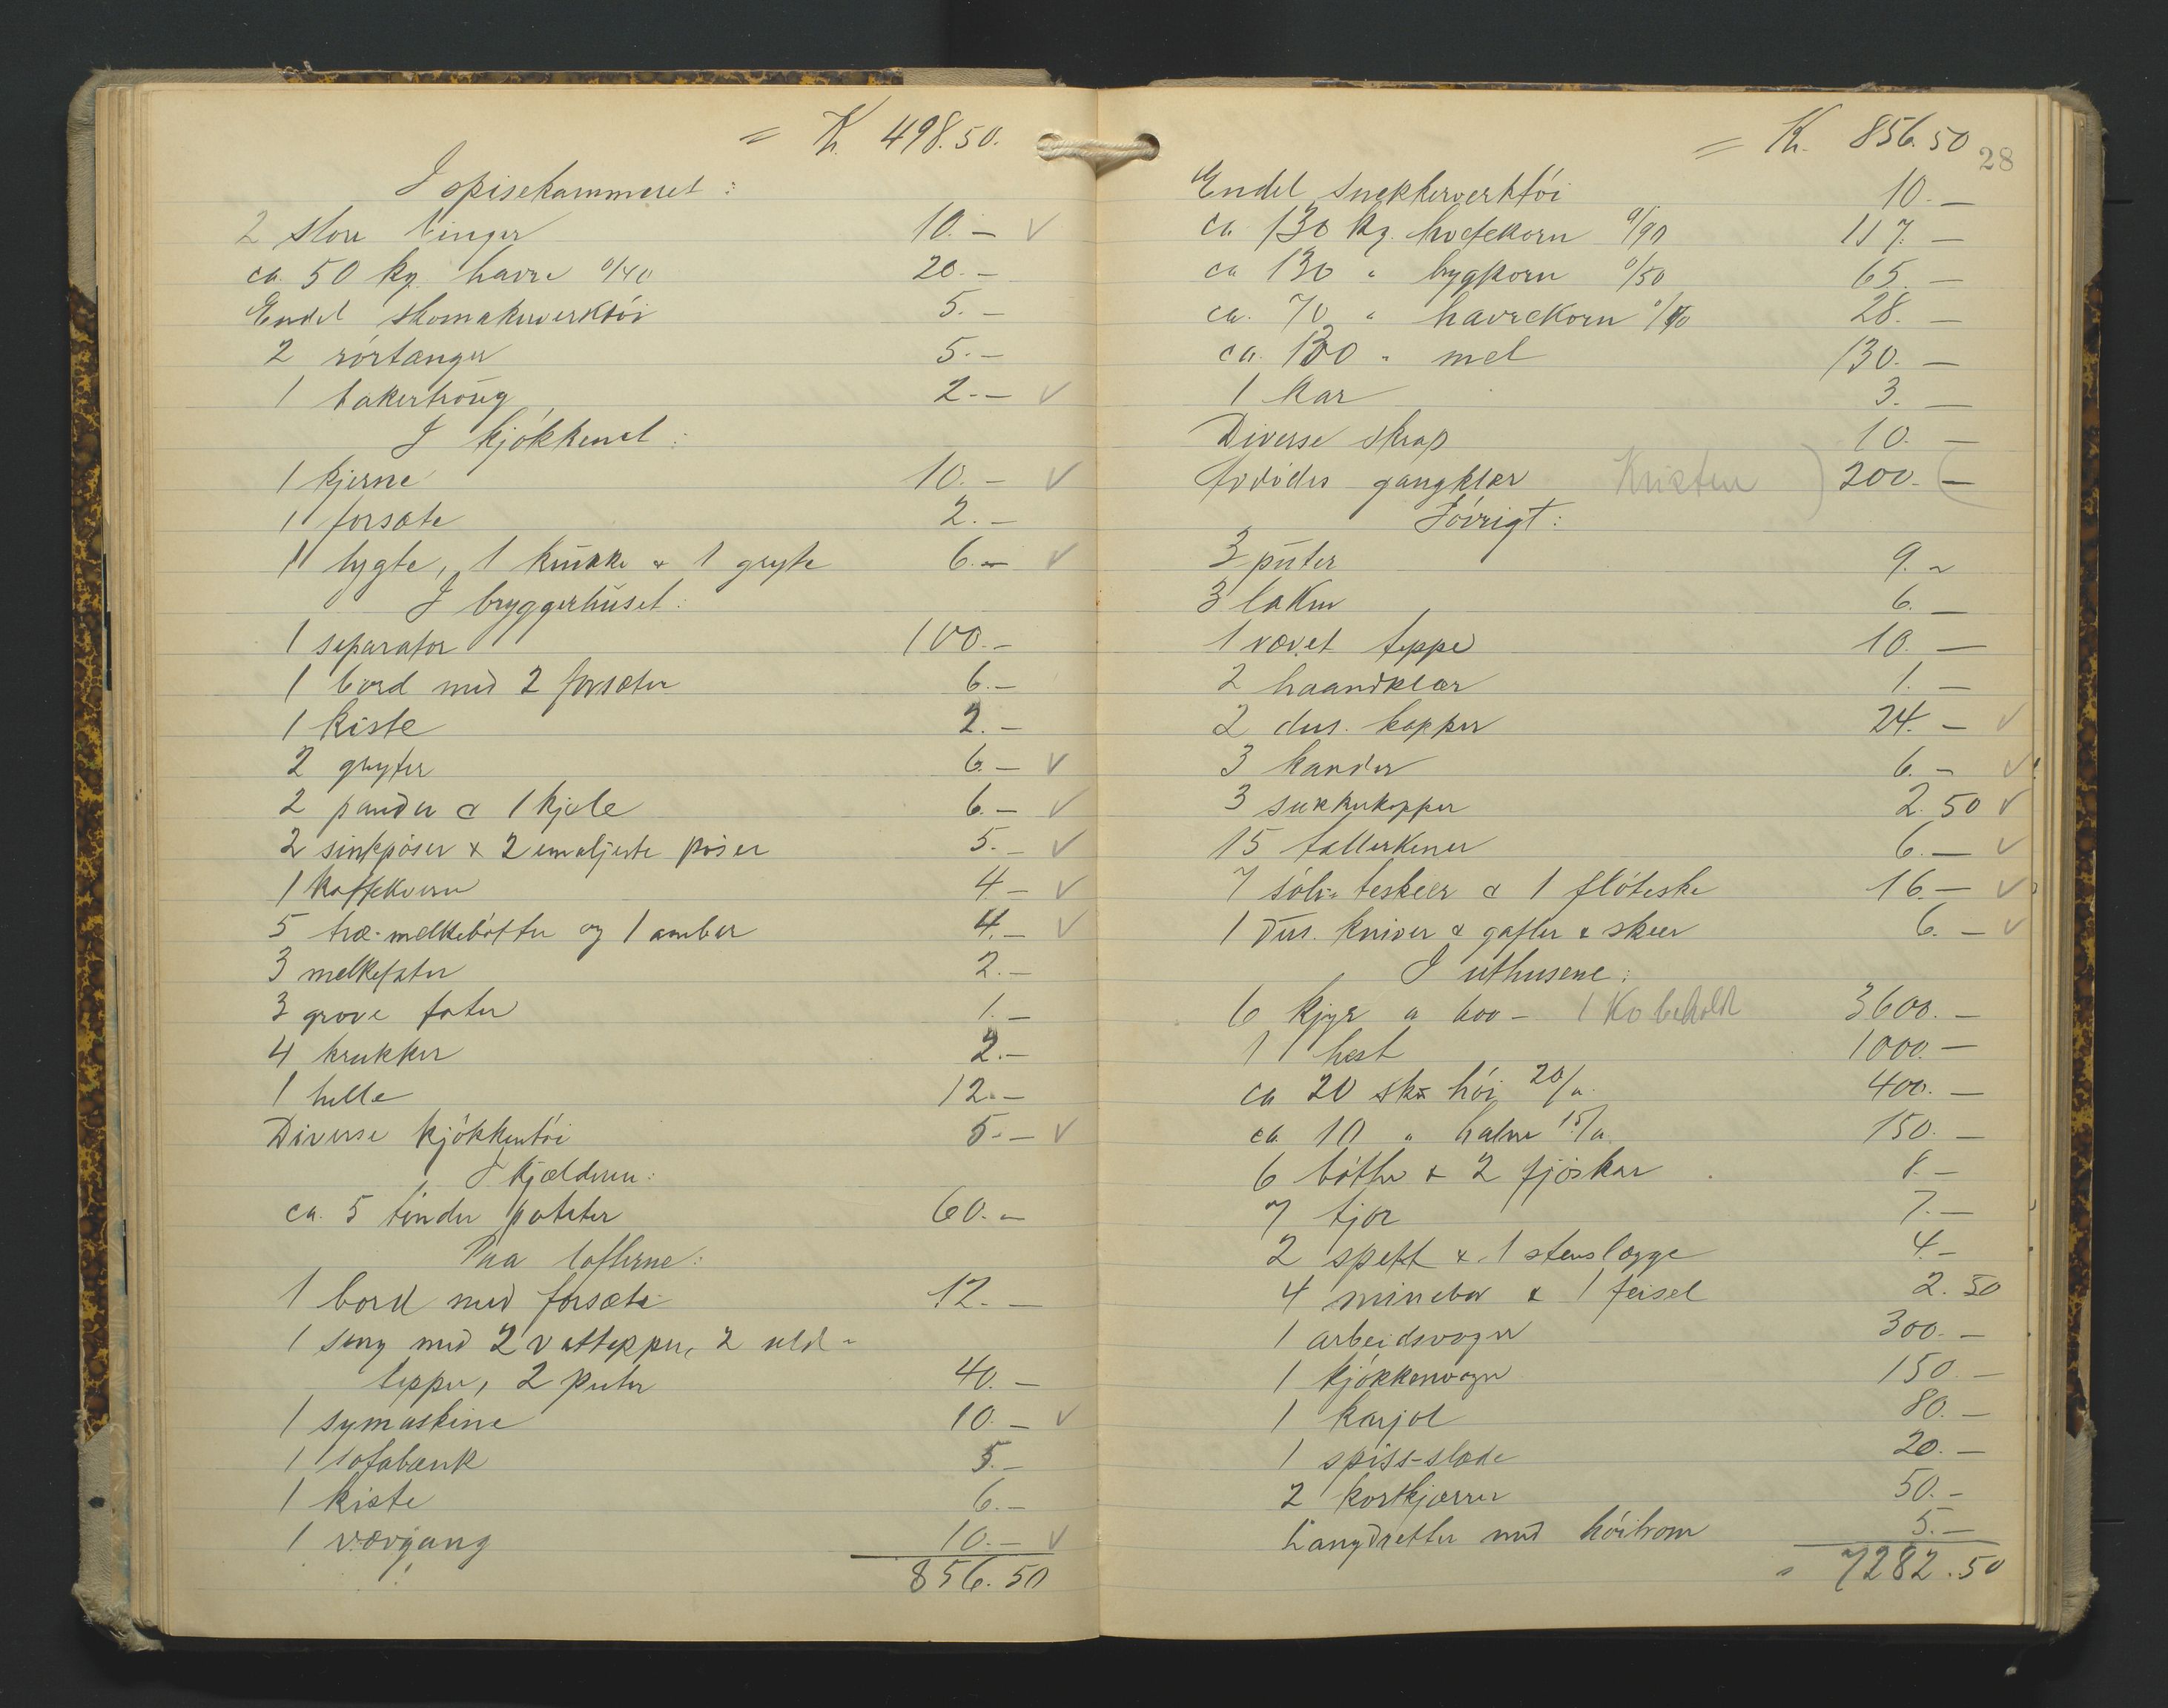 = Kr. 498.50.
I spisekammeret:
2 store binger 10.— ✓
ca. 50 kg. havre 0/40 20.—
Endel skomakerverktöi 5.—
2 rörtanger 5.—
1 bakertroug 2.— ✓
I kjökkenet:
1 kjerne 10.— ✓
1 forsæte 2.—
1 lygte, 1 krukke & 1 gryte 6.— ✓
I bryggerhuset:
1 separator 100.—
1 bord med 2 forsæter 6.—
1 kiste 2.—
2 gryter 6.— ✓
2 pander & 1 kjele 6.— ✓
2 sinkpöser & 2 emaljerte pöser 5.— ✓
1 kaffekvern 4.— ✓
5 træ-melkebötter og 1 ambar 4.— ✓
3 melkefater 2.—
3 grove fater 1.—
4 krukker 2.—
1 helle 12.—
Diverse kjökkentöi 5.— ✓
I kjælderen:
ca. 5 tönder poteter 60.—
Paa lofterne:
1 bord med forsæte 12.—
1 seng med 2 vatteppen, 2 uld-
tepper, 2 puter 40.—
1 symaskine 10.— ✓
1 sofabænk 5.—
1 kiste 6.—
1 vævgang 10.— ✓
856.50
= Kr. 856.50
28
Endel snekkerverktöi 10.—
ca. 130 kg. hvetekorn 0/90 117.—
ca 130 " bygkorn 0/50 65.—
ca. 70 " havrekorn 0/40 28.—
ca. 130 " mel 130.—
1 kar 3.—
Diverse skrap 10.—
Avdödes gangklær Kristen ) 200.— (
Iövrigt:
3 puter 9.—
3 laken 6.—
1 vævet teppe 10.—
2 haandklær 1.—
2 dus. kopper 24.— ✓
3 kander 6.— ✓
3 sukkerkopper 2.50 ✓
15 tallerkener 6.— ✓
7 sölv-teskeer & 1 flöteske 16.— ✓
1 dus. kniver & gafler & skeer 6.— ✓
I uthusene:
6 kjyr a 600— 1 ko beholdt 3600.—
1 hest 1000.—
ca 20 sk# höi 20/a. 400.—
ca. 10 " halm 15/a. 150.—
6 bötter & 2 fjöskar 8.—
7 tjor 7.—
2 spett & 1 stenslægge 4.—
4 minebor & 1 feisel 2.50
1 arbeidsvogn 300.—
1 kjökkenvogn 150.—
1 karjol 80.—
1 spiss-slæde 20.—
2 kortkjærrer 50.—
Langdrætter med höitrom 5.—
= 7282.50